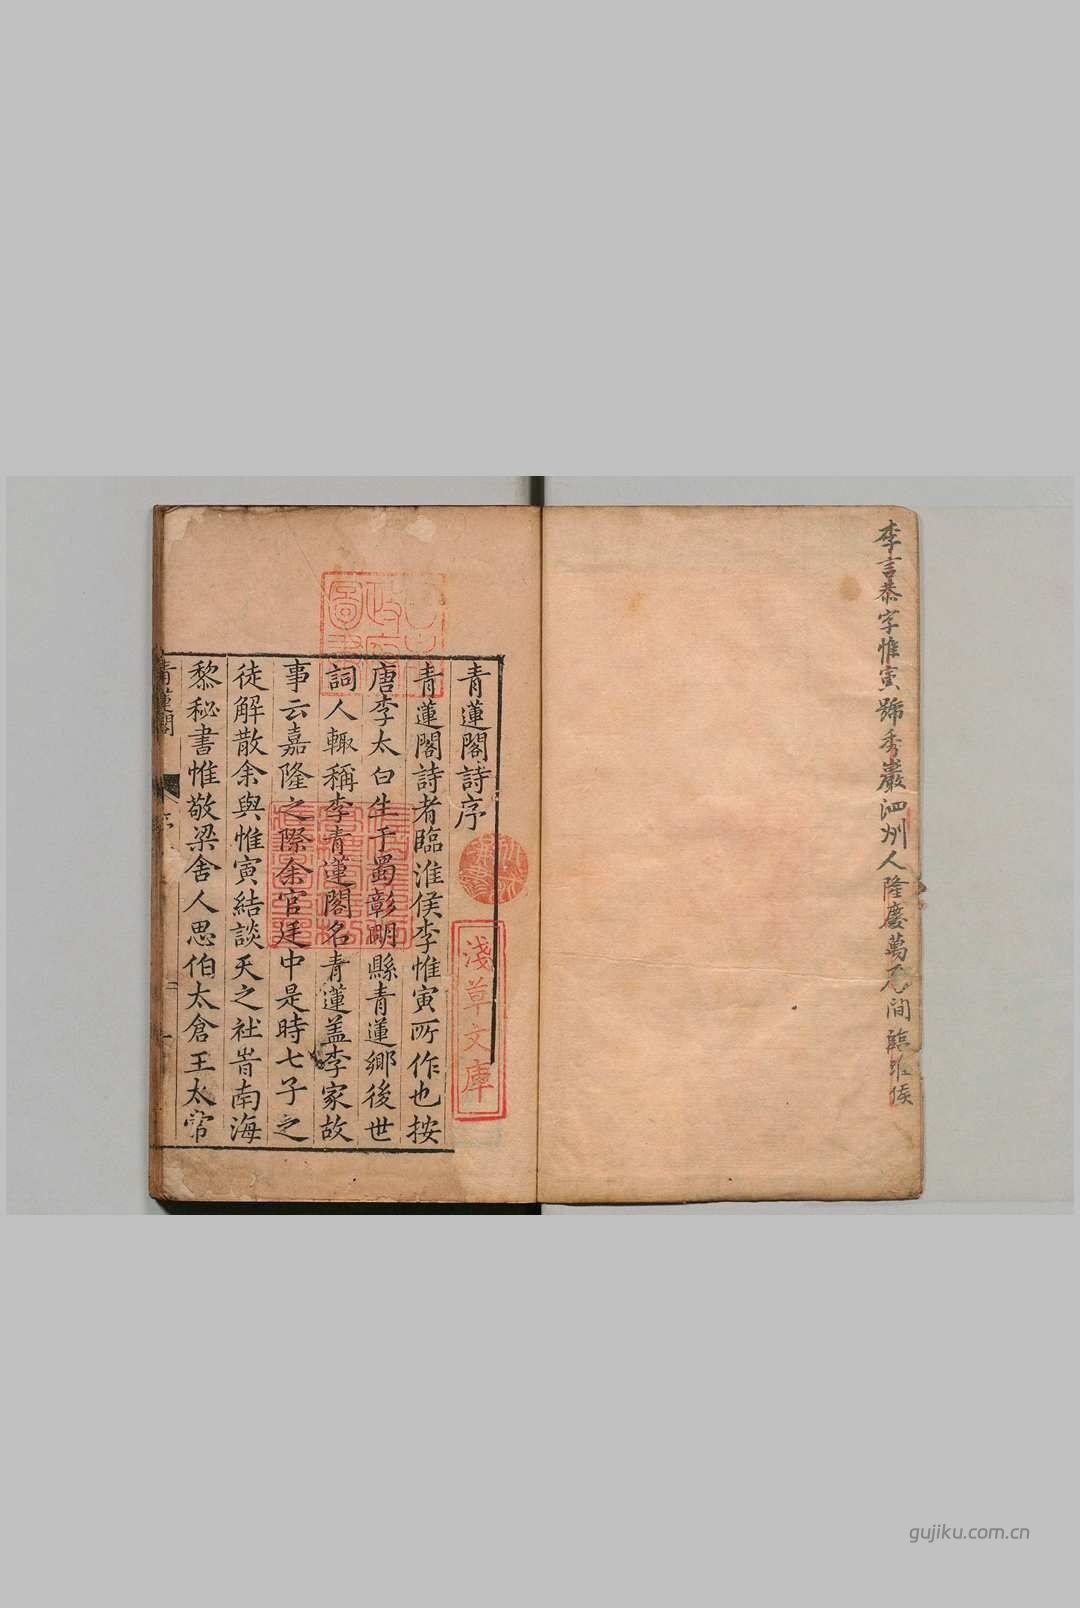 李言恭字惟寅號秀巖泗州人隆慶萬曆間臨淮侯
青蓮閣詩序
青蓮閣詩者臨淮侯李惟寅所作也按
唐李太白生于蜀彰明縣青蓮鄉後世
詞人輙稱李青蓮閣名青蓮盖李家故
事云嘉隆之際余官廷中是時七子之
徒解散余與惟寅結談天之社旹南海
黎秘書惟敬梁舍人思伯太倉王太常
青蓮閣
序
一
淺草文庫
圖書
gujiku.com.cn